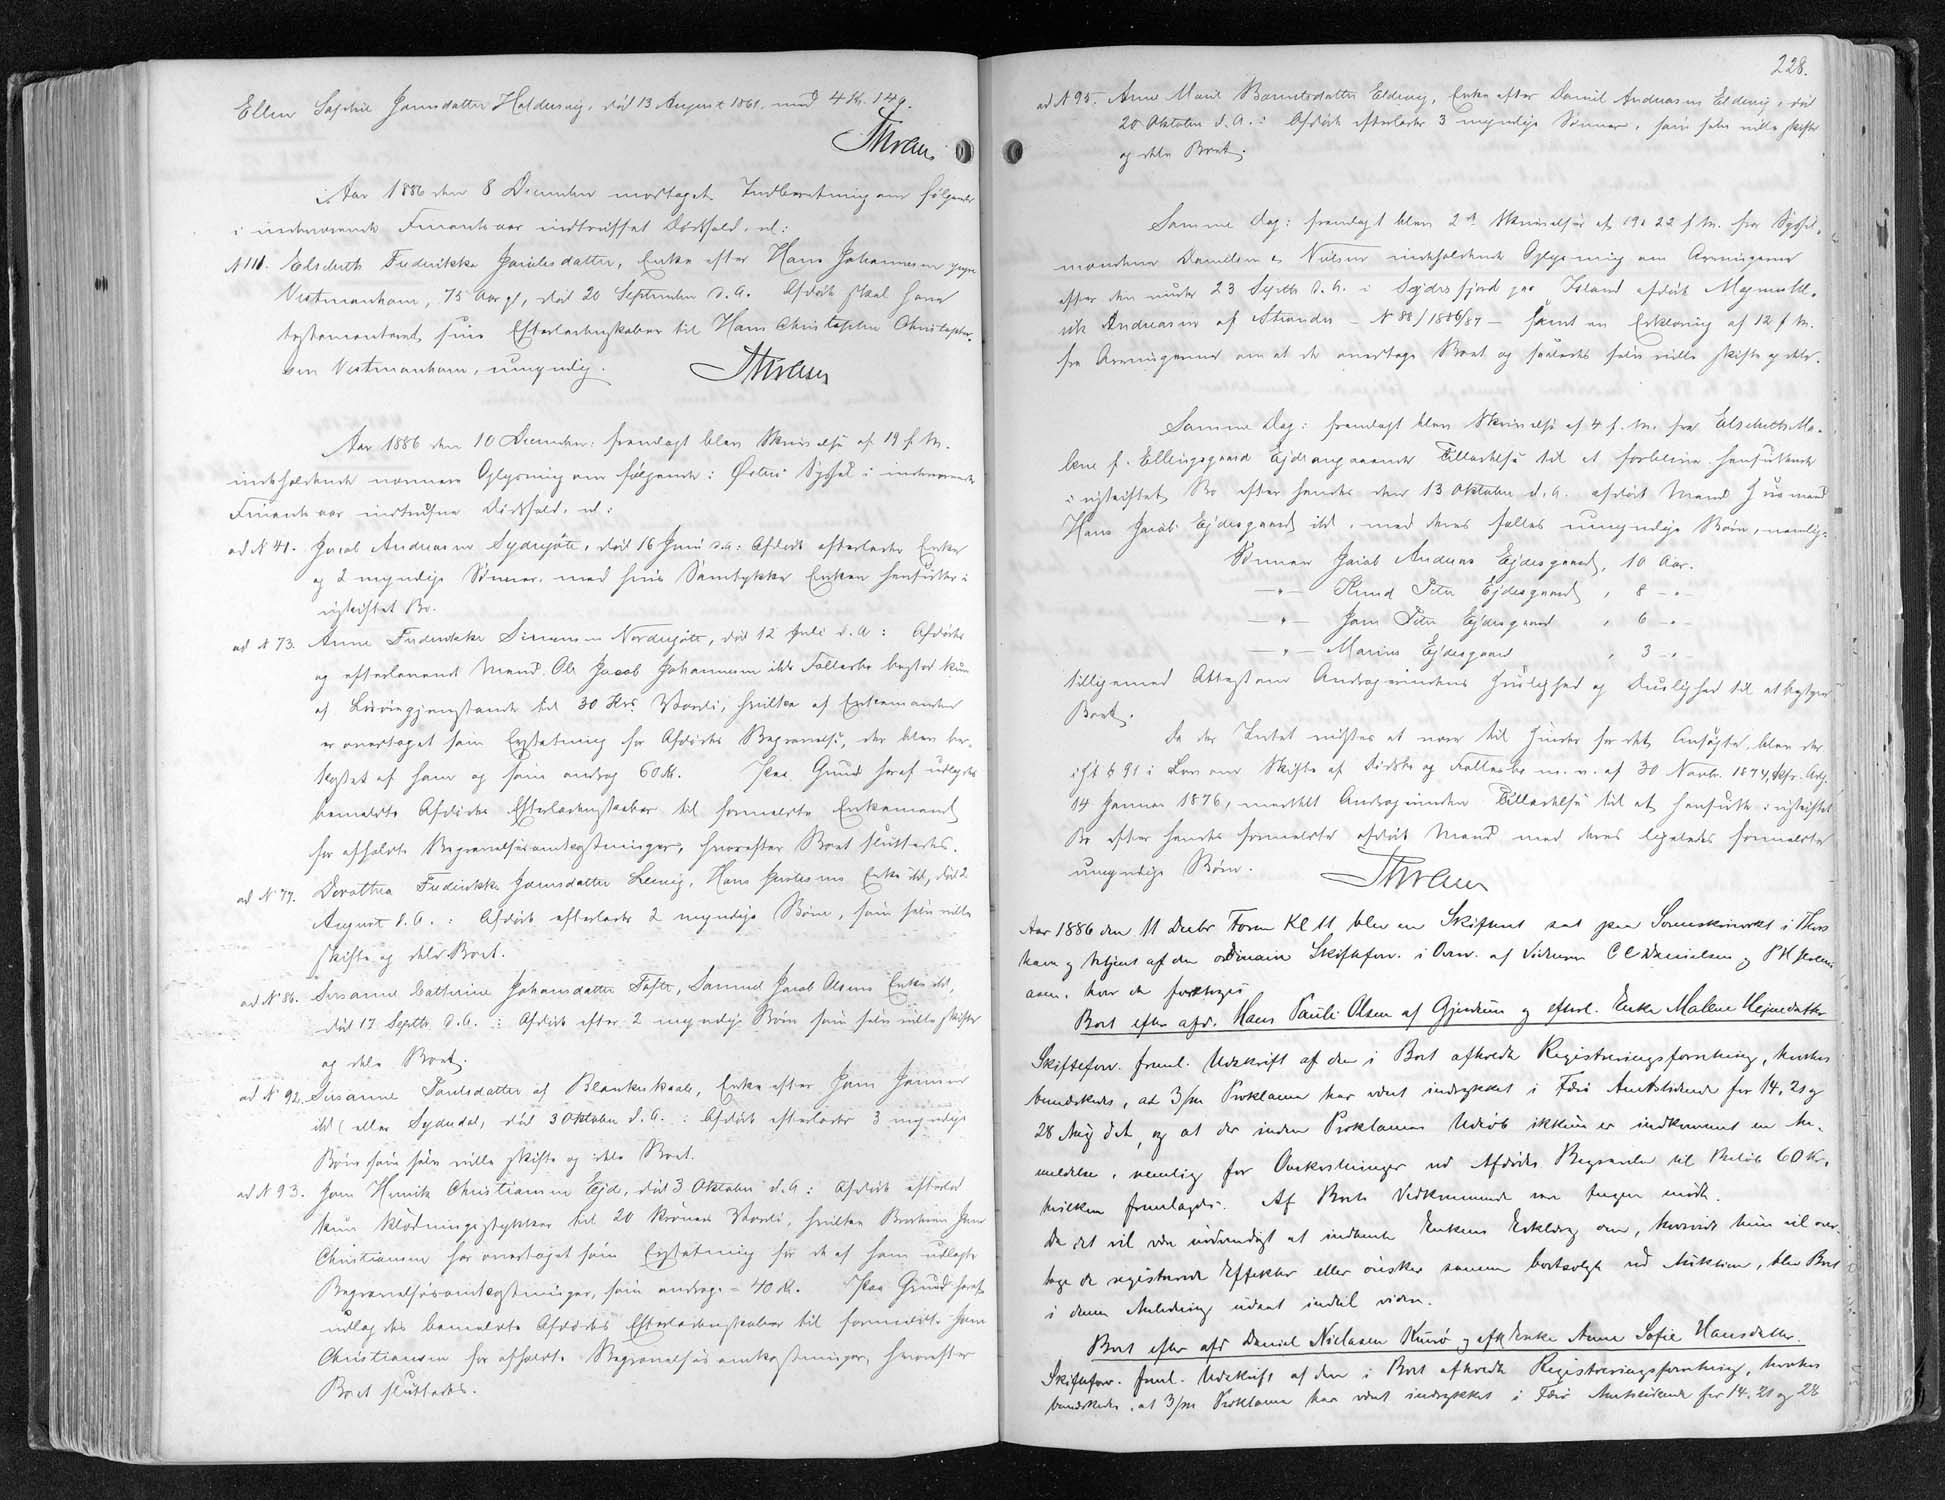 Ellen Sophie Joensdatter Haldersvig, død 13 August 1861, med 4 Kr. 14 ø.
Aar 1886 den 8 December modtaget Indberetning om følgende
i indeværende Finantsaar indtruffet Dødsfald, nl:
N 111. Elsebeth Fredrikke Joensdatter, Enke efter Hans Johannesen
Vestmanhavn, 75 Aar gl, død 20 September d. A. Afdøde skal have
testamenteret sine Efterladenskaber til Hans Christopher Christopher-
sen Vestmanhavn, umyndig.
Aar 1886 den 10 December: fremlagt blev Skrivelse af 19 f. M.
indeholdende nærmere Oplysning om følgende i Østerø Syssel i indeværende
Finantsaar indtrufne Dødsfald, nl:
ad N 41. Jacob Andreasen Sydregjøte, død 16 Juni d. A: Afdøde efterlader Enke
og 2 myndige Sønner, med hvis Samtykke Enken hensidder i
uskiftet Bo.
ad N 73. Anne Fredrikke Simonsen Nordregjøte, død 12 Juli d. A: Afdødes
og efterlevende Mand Ole Jacob Johannesen ibds Fællesbo bestod kun
af Løsøregjenstande til 30 Krs Værdi, hvilke af Enkemanden
er overtaget som Erstatning for Afdødes Begravelse, der blev be-
kostet af ham og som androg 60 Kr. Paa Grund heraf udlagdes
bemeldte Afdødes Efterladenskaber til formeldte Enkemand
for afholdte Begravelsesomkostninger, hvorefter Boet sluttedes.
ad N 77. Dorothea Fredrikke Joensdatter Lervig, Hans Enke ibd, død 2
August d. A.: Afdøde efterlader 2 myndige Børn, som selv ville
skifte og dele Boet.
ad N 86. Susanne Cathrine Johansdatter Tofte, Samuel Jacob Olsens Enke ibd,
død 17 Septb. d. A.: Afdøde efter 2 myndige Børn som selv ville skifte
og dele Boet.
ad N 92. Susanne Poulsdatter af Blankeskaale, Enke efter Joen Joensen
ibd (eller Sydredal, død 3 Oktober d. A.: Afdøde efterlader 3 myndige
Børn som selv ville skifte og dele Boet.
ad N 93. Joen Henrik Christiansen Ejde, død 3 Oktober d. A: Afdøde efterlod
kun Klædningsstykker til 20 Kroners Værdi, hvilke Broderen Joen
Christiansen har overtaget som Erstatning for de af ham udlagte
Begravelsesomkostninger, som androge = 40 Kr. Paa Grund heraf
udlagdes bemeldte Afdødes Efterladenskaber til formeldte Joen
Christiansen for afholdte Begravelsesomkostninger, hvorefter
Boet sluttedes.
228.
ad N 95. Anne Marie Barentsdatter Eldevig, Enke efter Daniel Andreasen Eldevig, død
20 Oktober d. A.: Afdøde efterlader 3 myndige Sønner, som selv ville skifte
og dele Boet.
Samme Dag: fremlagt blev 2de Skrivelser af 19 22 f. M. fra Syssel-
mændene Danielsen & Nielsen indeholdende Oplysning om Arvingerne
efter den under 23 Septb. d. A. i Sejdisfjord paa Island afdøde
Andreasen af Strænder - N 88/1886/87 - samt en Erklæring af 12 f. M.
fra Arvingerne om at de overtage Boet og saaledes selv ville skifte og dele.
Samme Dag: fremlagt blev Skrivelse af 4 f. M. fra Elsebeth Ma-
lene f. Ellingsgaard Ejde angaaende Tilladelse til at forblive hensiddende
i uskiftet Bo efter hendes den 13 Oktober d. A. afdøde Mand Huusmand
Hans Jacob Ejdesgaard ibd, med deres fælles umyndige Børn, nemlig:
Sønnen Jacob Andreas Ejdesgaard, 10 Aar.
-"- Knud Peter Ejdesgaard, 8 -"-
-"- Joen Peter Ejdesgaard, 6 -"-
-"- Marius Ejdesgaard, 3 -"-
tilligemed Attest om Andragerindens Huuslighed og Duelighed til at bestyre
Boet.
Da der Intet vidstes at være til Hinder for det Ansøgte, blev der
i Hh. t. § 91 i Lov om Skifte af Dødsbo og Fællesbo m. v. af 30 Novbr. 1874,
14 Januar 1876, meddelt Andragerinden Tilladelse til at hensidde i uskiftet
Bo efter hendes formeldte afdøde Mand med deres ligeledes formeldte
umyndige Børn.
Aar 1886 den 11 Decbr Form Kl 11 blev en Skifteret sat paa Sorenskriverkt i Thors
havn og betjent af den ordinaire Skifteforv. i Overv. af Vidnerne C C Danielsen og P H
hvor da foretoges
Boet efter afd. Hans Pauli Olsen af Gjendrum og efterl. Enke Malene Hejnedatter
Skifteforv. freml. Udskrift af den i Boet afholdte Registreringsforretning, hvorhos
bemærkedes, at 3/m Proklama har været indrykket i Færø Amtstidende for 14, 21 og
28 Aug d A, og at der inden Proklamas Udløb ikkun er indkommet en An-
meldelse, nemlig for Omkostninger ved Afdødes Begravelse til Beløb 60 Kr,
hvilken fremlagdes. Af Boets Vedkommende var Ingen mødt.
Da det vil være nødvendigt at indhente Enkens Erklæring om, hvorvidt hun vil over-
tage de registrerede Effekter eller ønsker samme bortsolgt ved Auktion, blev Boet
i denne Anledning udsat indtil videre.
Boet efter afd Daniel Nielssen Kunø og eft Enke Anne Sofie Hansdatter.
Skifteforv. freml. Udskrift af den i Boet afholdte Registreringsforretning, hvorhos
bemærkedes, at 3/m Proklama har været indrykket i Færø Amtstidende for 14, 21 og 28